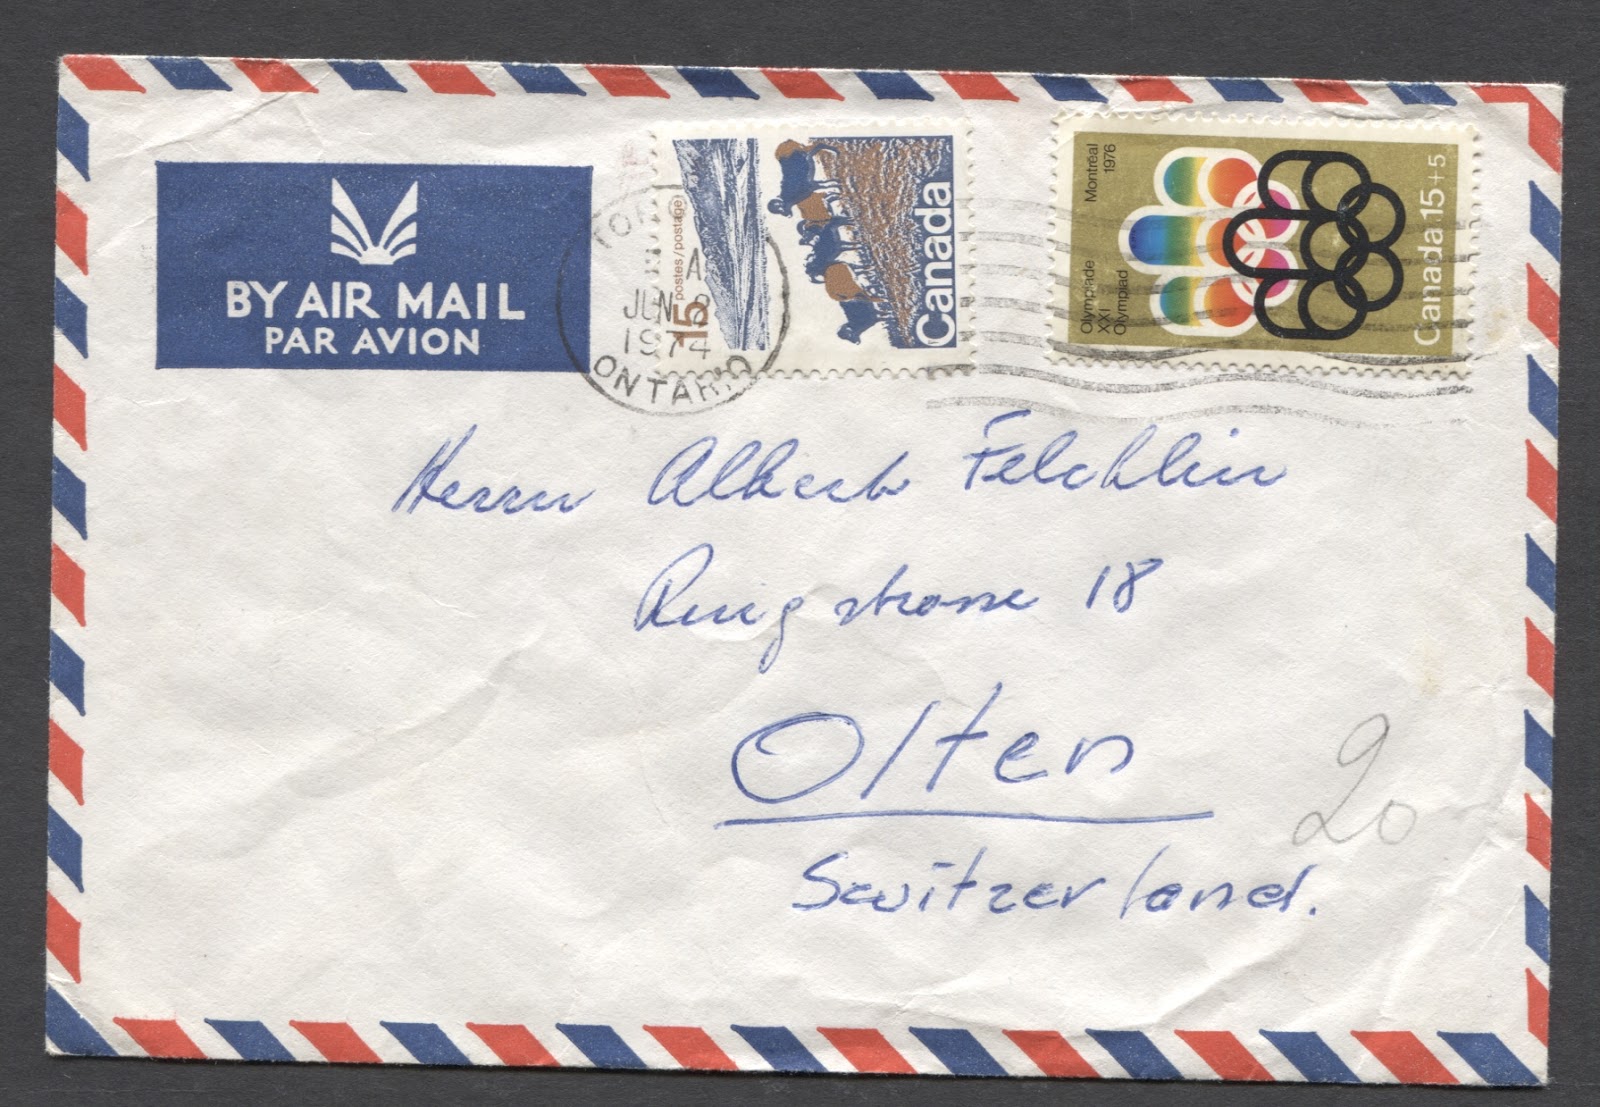 BY AIR MAIL
PAR AVION
TOR
A
JUN
1974
ONTARIO
15 postes/postage
Canada
Montréal 1976
Olympiade XXI Olympiad
Canada 15+5
Herrn Albert Felchlin
Ringstrasse 18
Olten
Switzerland.
20